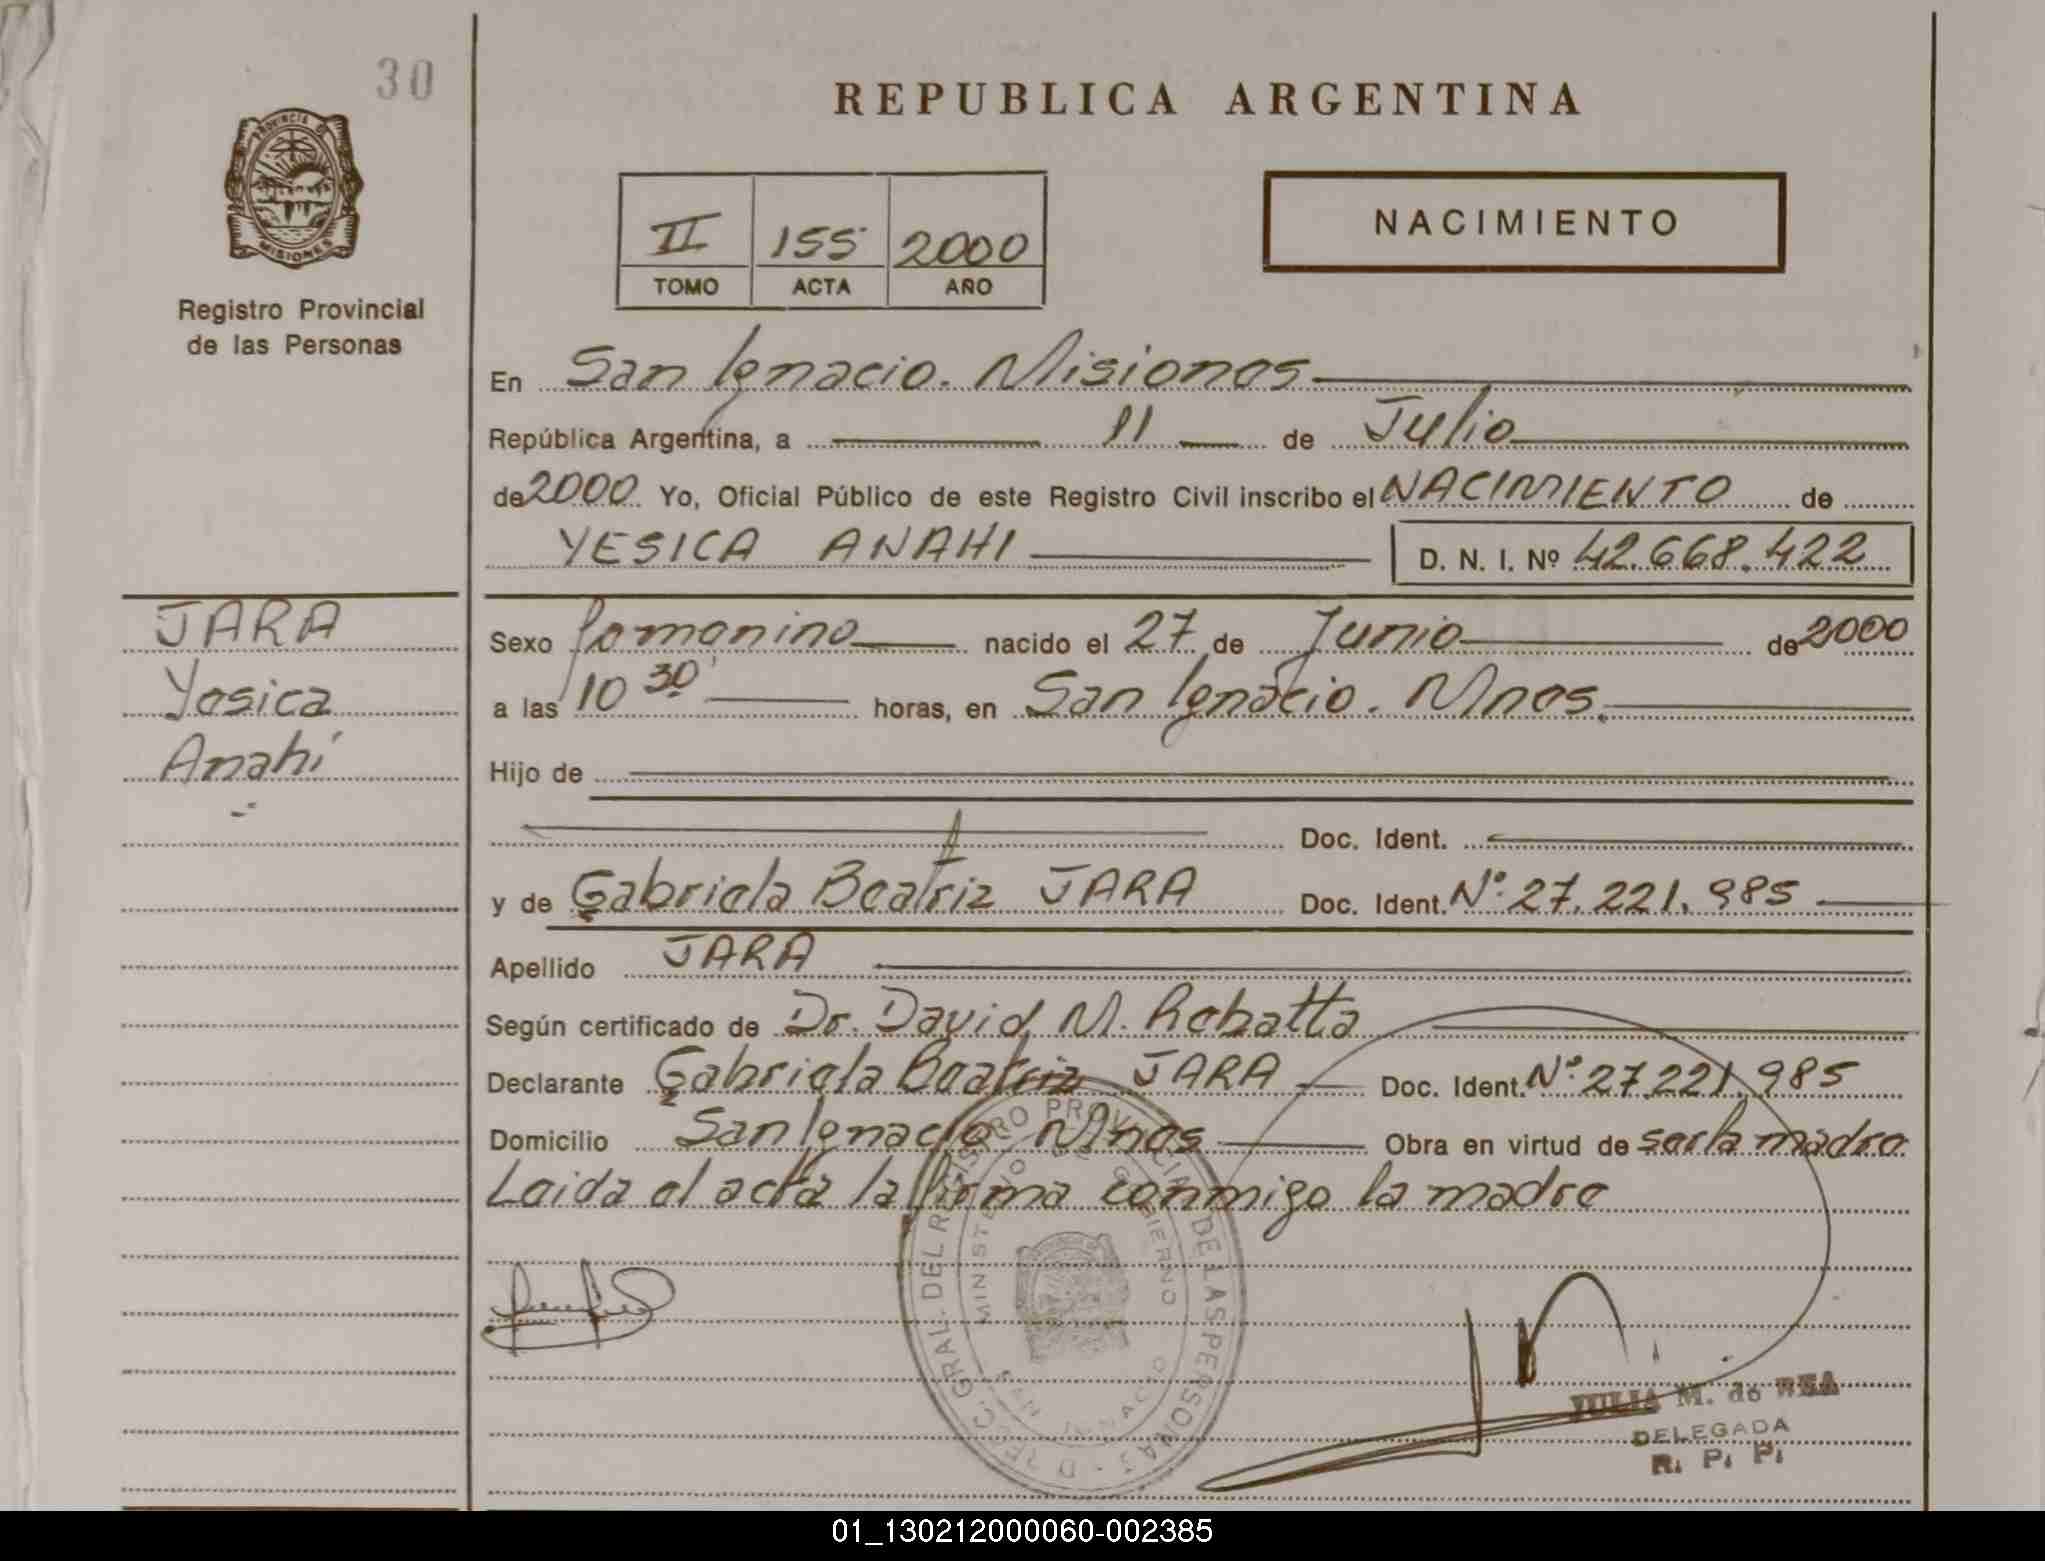 30
REPUBLICA ARGENTINA
PROVINCIA DE
MISIONES
Registro Provincial
de las Personas
II 155 2000
TOMO ACTA AÑO
NACIMIENTO
En San Ignacio. Misiones
República Argentina, a 11 de Julio
de 2000. Yo, Oficial Público de este Registro Civil inscribo el NACIMIENTO de
YESICA ANAHI D. N. I. Nº 42.668.422
JARA
Yesica
Anahí
Sexo femenino nacido el 27 de Junio de 2000
a las 10 30' horas, en San Ignacio. Mnes.
Hijo de
Doc. Ident.
y de Gabriela Beatriz JARA Doc. Ident. Nº 27.221.985
Apellido JARA
Según certificado de Dr. David M. Rebatta
Declarante Gabriela Beatriz JARA Doc. Ident. Nº 27.221.985
Domicilio San Ignacio Mnes Obra en virtud de ser la madre
Leida el acta la firma conmigo la madre
DIREC. GRAL. DEL REGISTRO PROVINCIAL DE LAS PERSONAS
MINISTERIO DE GOBIERNO
SAN IGNACIO
JULIA M. de REA
DELEGADA
R. P. P.
01_130212000060-002385